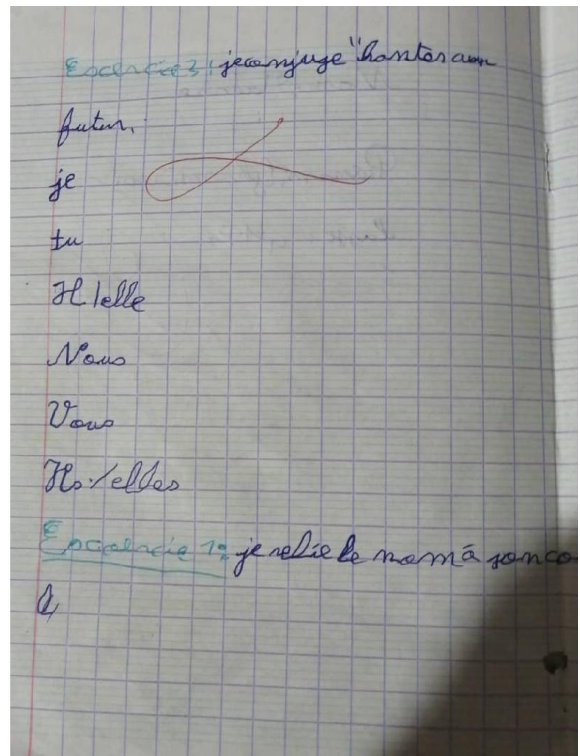 Excercie3: je conjuge "hanter aun
futur.
je
tu
Il/elle
Nous
Vous
Ils/elles
Excercie 1: je relie le nom à son co